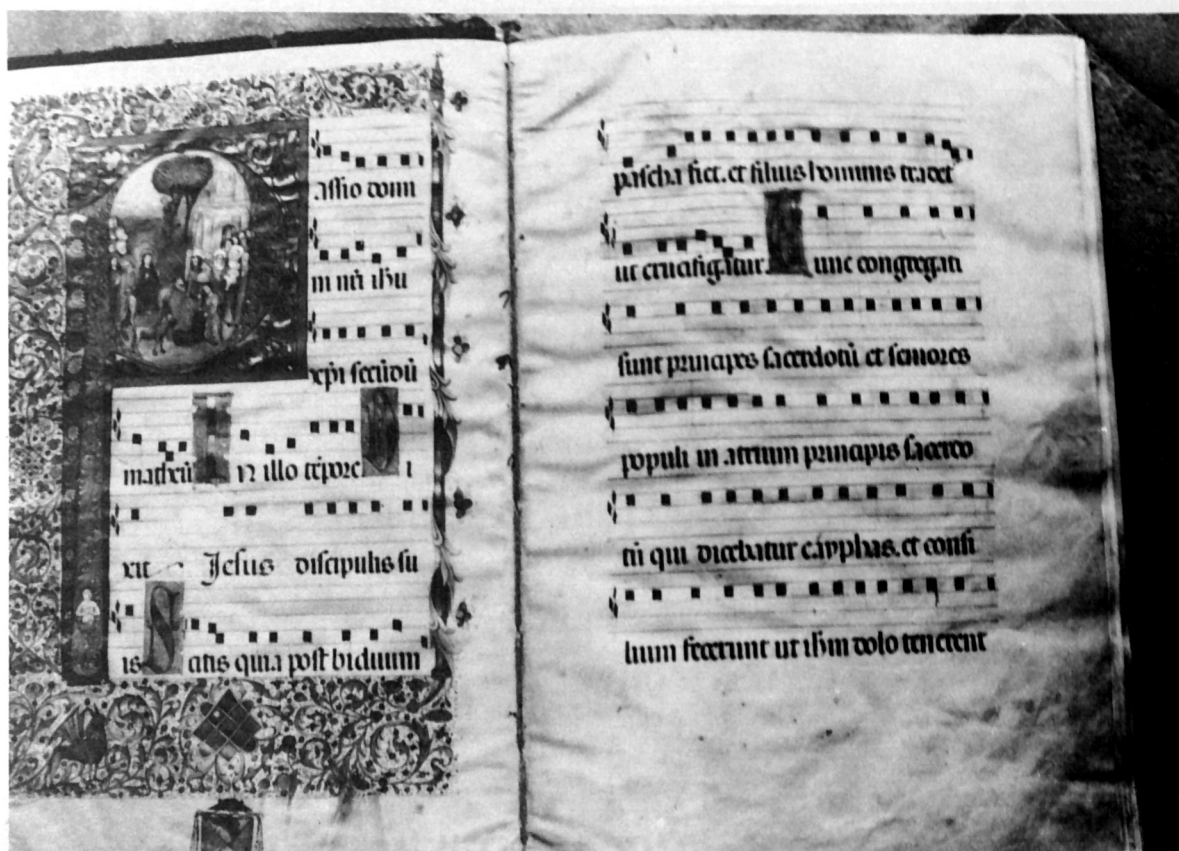 assio domi
ni nr̄i ihu
xp̄i secūdū
matheū In illo tēpore Di
xit Jesus discipulis su
is Scitis quia post biduum
pascha fiet. et filius hominis tradet
ut crucifigatur Tunc congregati
sunt principes sacerdotū et seniores
populi in atrium principis sacerdo
tū qui dicebatur cayphas. et consi
lium fecerunt ut ihm dolo tenerent